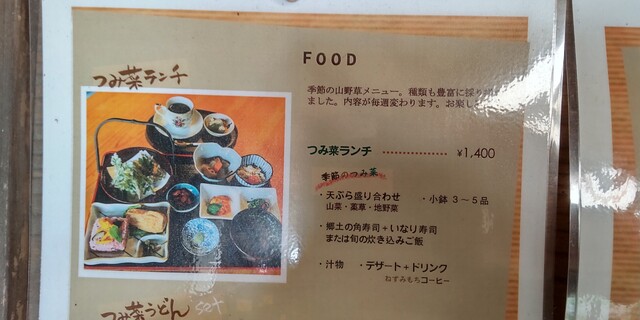 FOOD
つみ菜ランチ
季節の山野草メニュー。種類も豊富に採り
ました。内容が毎週変わります。お楽し
つみ菜ランチ ……………… ¥1,400
季節のつみ菜
・天ぷら盛り合わせ ・小鉢 3〜5品
山菜・薬草・地野菜
・郷土の角寿司＋いなり寿司
または旬の炊き込みご飯
・汁物 ・デザート＋ドリンク
ねずみもちコーヒー
つみ菜うどん set